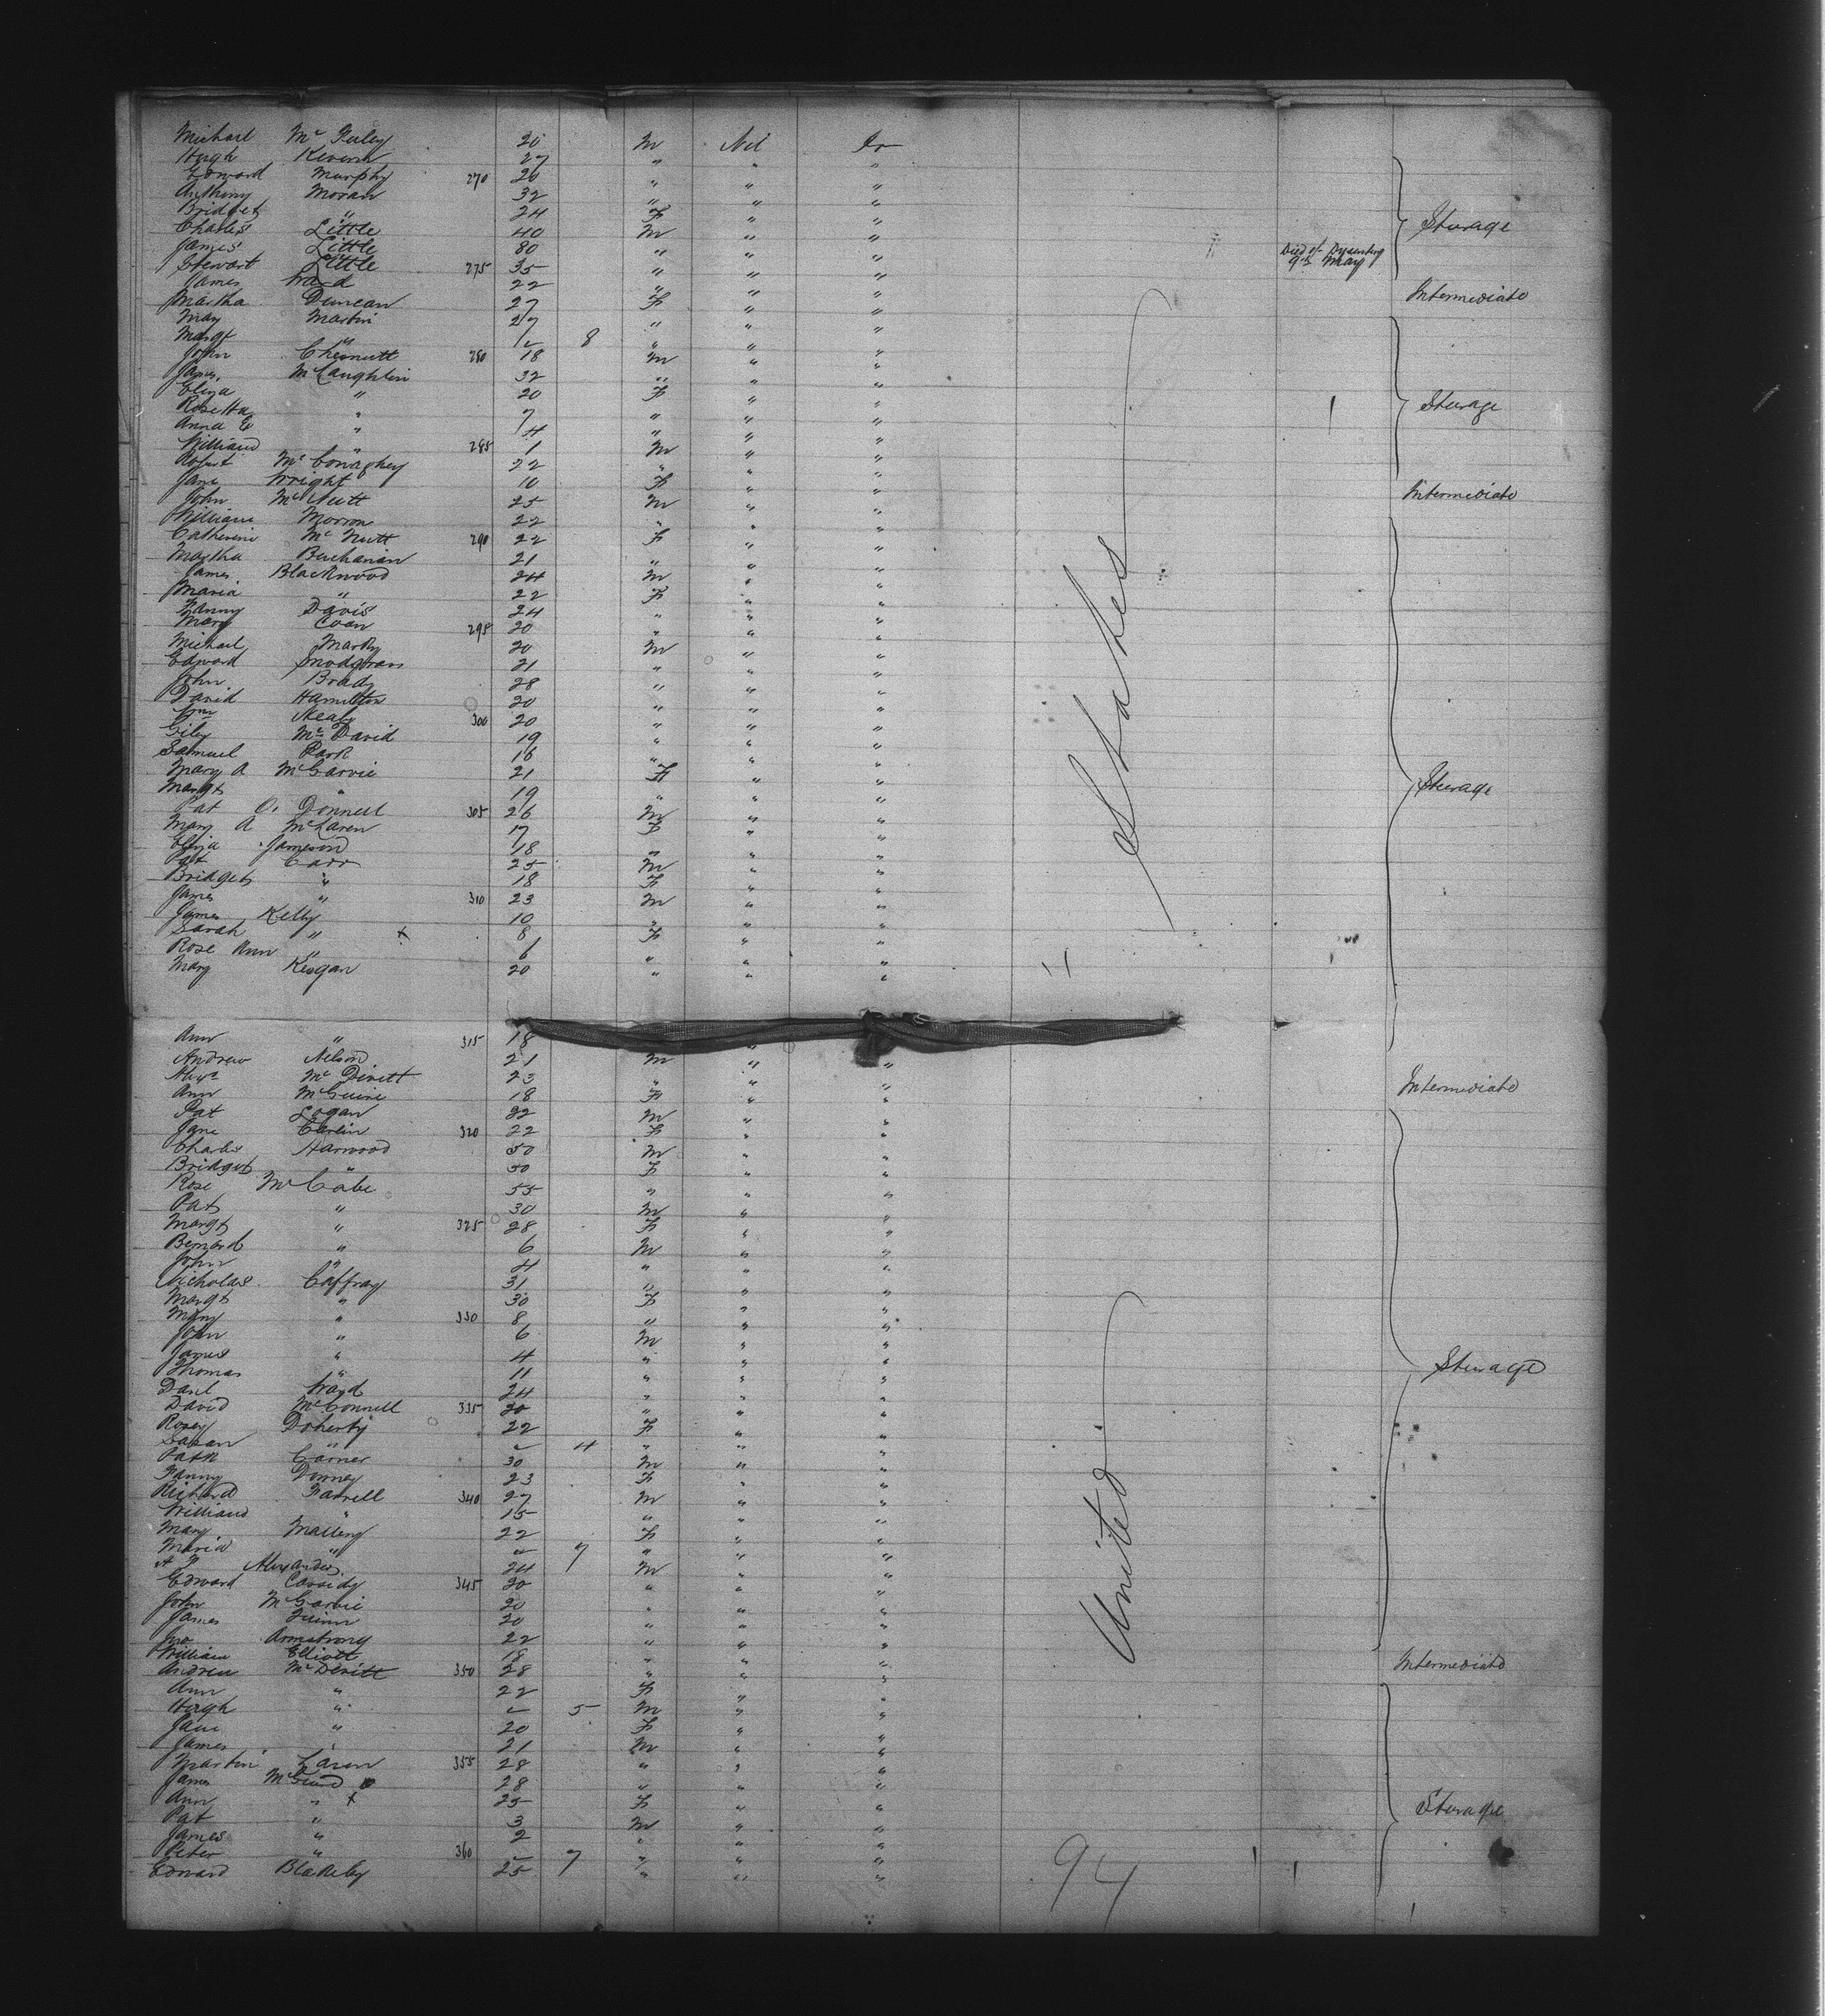 Michael Mc Guley 20 M Nil Ir
Hugh Keverin 27 " " "
Edward Murphy 270 20 " " "
Anthony Moran 32 " " "
Bridget " 24 F " "
Charles Little 40 M " " Sturage
James Little 80 " " " Died of Dysentery 9th May
Stewart Little 275 35 " " "
James Ward 22 " " "
Martha Duncan 27 F " " Intermediate
May Martin 27 " " "
Margt " 8 " " "
John Chesnutt 280 18 M " "
James McLaughlin 32 " " "
Eliza " 20 F " "
Rosetta " 7 " " " Sturage
Anna E " 4 " " "
William " 285 1 M " "
Robert McConaghey 22 " " "
Jane Wright 10 F " "
John McNutt 25 M " " Intermediate
William Morron 22 " " "
Catherine McNutt 290 22 F " "
Martha Buchanan 21 " " "
James Blackwood 24 M " "
Maria " 22 F " "
Fanny Davis 24 " " "
Mary Coan 295 20 " " "
Michael Marky 20 M " "
Edward Snodgrass 21 " " "
John Brady 28 " " "
David Hamilton 20 " " "
Wm Nealy 300 20 " " "
Giley McDavid 19 " " "
Samuel Park 18 " " "
Mary A McGarvie 21 F " " Sturage
Margt " 19 " " "
Pat O. Donnell 305 26 M " "
Mary A McLaren 17 F " "
Eliza Jameson 18 " " "
Pat Carr 25 M " "
Bridget " 18 F " "
James " 310 23 M " "
James Kelly 10 " " "
Sarah " x 8 F " "
Rose Ann " 6 " " "
Mary Keegan 20 " " "
States
Ann " 315 18 "
Andrew Nelson 21 M " "
Alexr McDivitt 23 " " " Intermediate
Ann McGuire 18 F " "
Pat Logan 22 M " "
Jane Carlin 320 22 F " "
Charles Harwood 50 M " "
Bridget " 50 F " "
Rose McCabe 55 " " "
Pat " 30 M " "
Margt " 325 28 F " "
Bernard " 6 M " "
John " 4 " " "
Nicholas Caffray 31 " " "
Margt " 30 F " "
Mary " 330 8 " " "
John " 6 M " "
James " 4 " " " Sturage
Thomas " 11 " " "
Danl Ward 24 " " "
David McConnell 335 30 " " "
Rosey Doherty 22 F " "
Susan " 4 " " "
Patk Carner 30 M " "
Fanny Denney 23 F " "
Richard Farrell 340 27 M " "
William " 15 " " "
Mary Mallery 22 F " "
Maria " 7 " " "
Alexander 24 M " "
Edward Cassidy 345 20 " " "
John McGarvie 20 " " "
James Quinn 20 " " "
Jno Armstrong 22 " " "
William Elliott 18 " " "
Andrew McDevitt 350 28 " " " Intermediate
Ann " 22 F " "
Hugh " 5 M " "
Jane " 20 F " "
James " 21 M " "
Martin Laren 355 28 " " "
James McGuire 28 " " "
Ann " x 25 F " " Sturage
Pat " 3 M " "
James " 2 " " "
Peter " 360 7 " " "
Edward Blakely 25 " " "
United
94